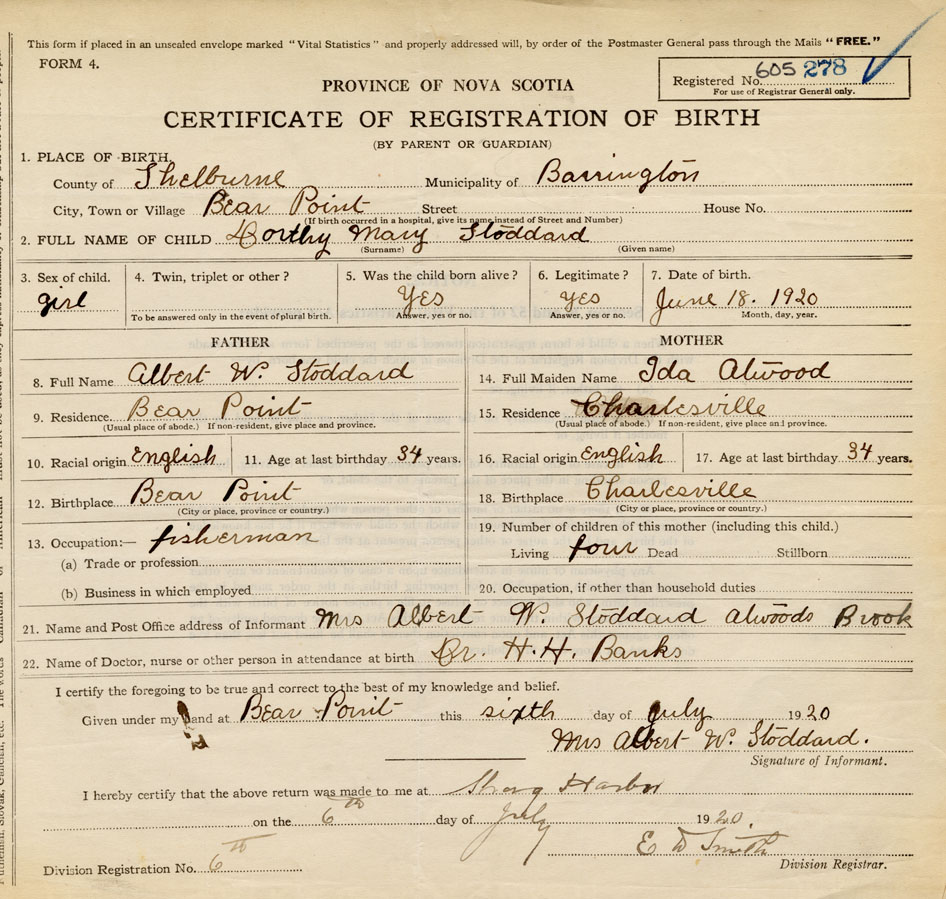 This form if placed in an unsealed envelope marked "Vital Statistics" and properly addressed will, by order of the Postmaster General pass through the Mails "FREE."
FORM 4.
Registered No. 605 278
For use of Registrar General only.
PROVINCE OF NOVA SCOTIA
CERTIFICATE OF REGISTRATION OF BIRTH
(BY PARENT OR GUARDIAN)
1. PLACE OF BIRTH.
County of Shelburne Municipality of Barrington
City, Town or Village Bear Point Street House No.
(If birth occurred in a hospital, give its name instead of Street and Number)
2. FULL NAME OF CHILD Dorthy Mary Stoddard
(Surname) (Given name)
3. Sex of child. 4. Twin, triplet or other? 5. Was the child born alive? 6. Legitimate? 7. Date of birth.
girl Yes Yes June 18. 1920
To be answered only in the event of plural birth. Answer, yes or no. Answer, yes or no. Month, day, year.
FATHER MOTHER
8. Full Name Albert W. Stoddard 14. Full Maiden Name Ida Atwood
9. Residence. Bear Point 15. Residence Charlesville
(Usual place of abode.) If non-resident, give place and province. (Usual place of abode.) If non-resident, give place and province.
10. Racial origin English 11. Age at last birthday 34 years. 16. Racial origin English 17. Age at last birthday 34 years.
12. Birthplace Bear Point 18. Birthplace Charlesville
(City or place, province or country.) (City or place, province or country.)
13. Occupation:— fisherman 19. Number of children of this mother (including this child.)
Living four Dead Stillborn
(a) Trade or profession
(b) Business in which employed 20. Occupation, if other than household duties
21. Name and Post Office address of Informant Mrs Albert W. Stoddard Atwoods Brook
22. Name of Doctor, nurse or other person in attendance at birth Dr. H. H. Banks
I certify the foregoing to be true and correct to the best of my knowledge and belief.
Given under my hand at Bear Point this sixth day of July 1920
Mrs Albert W. Stoddard.
Signature of Informant.
I hereby certify that the above return was made to me at Shag Harbor
on the 6th day of July 1920.
E D Smith
Division Registrar.
Division Registration No. 6th